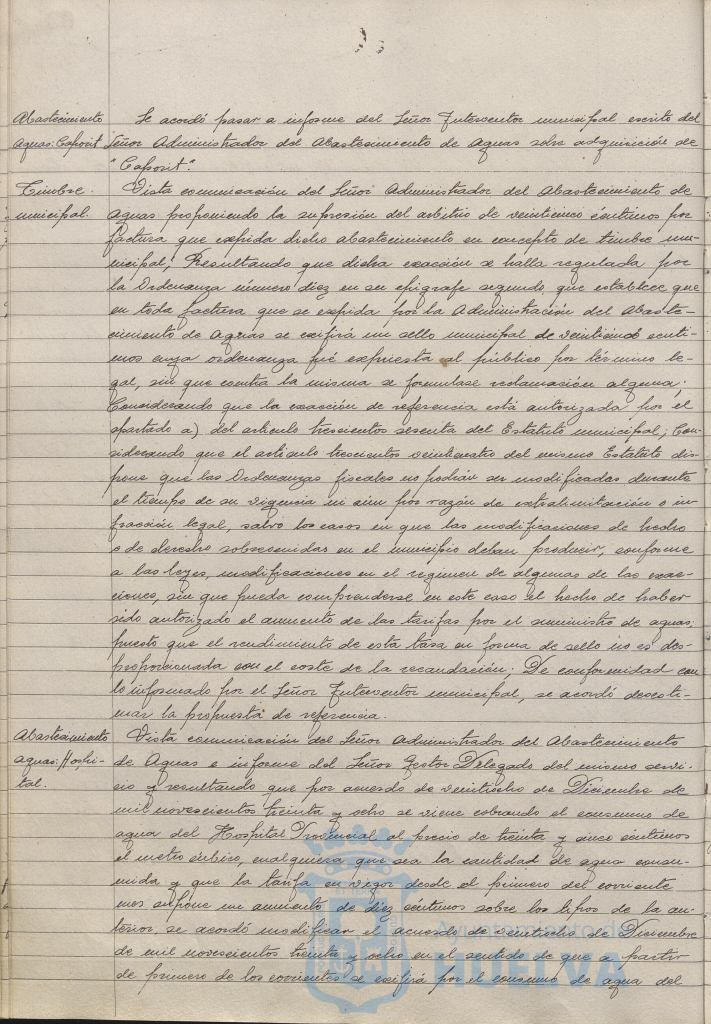 Abastecimiento
aguas: Caporit
Se acordó pasar a informe del Señor Interventor municipal escrito del
Señor Administrador del Abastecimiento de Aguas sobre adquisición de
"Caporit".
Timbre
municipal.
Vista comunicación del Señor Administrador del Abastecimiento de
Aguas proponiendo la supresión del arbitrio de veinticinco céntimos por
factura que expida dicho abastecimiento en concepto de timbre mu-
nicipal; Resultando que dicha exacción se halla regulada por
la Ordenanza número diez en su epígrafe segundo que establece que
en toda factura que se expida por la Administración del Abaste-
cimiento de Aguas se exifirá un sello municipal de veinticinco centi-
mos cuya ordenanza fué expuesta al público por término le-
gal, sin que contra la misma se formulase reclamación alguna;
Considerando que la exacción de referencia está autorizada por el
apartado a) del artículo trescientos sesenta del Estatuto municipal; Con-
siderando que el artículo trescientos veinticuatro del mismo Estatuto dis-
pone que las Ordenanzas fiscales no podrán ser modificadas durante
el tiempo de su vigencia ni aún por razón de extralimitación o in-
fracción legal, salvo los casos en que las modificaciones de hecho
o de derecho sobrevenidas en el municipio deban producir, conforme
a las leyes, modificaciones en el regimen de algunas de las exac-
ciones, sin que pueda comprenderse en este caso el hecho de haber
sido autorizado el aumento de las tarifas por el suministro de aguas;
puesto que el rendimiento de esta tasa en forma de sello no es des-
proporcionada con el coste de la recaudación; De conformidad con
lo informado por el Señor Interventor municipal, se acordó desesti-
mar la propuesta de referencia.
Abastecimiento
aguas: Hospi-
tal.
Vista comunicación del Señor Administrador del Abastecimiento
de Aguas e informe del Señor Gestor Delegado del mismo servi-
cio y resultando que por acuerdo de veintiocho de Diciembre de
mil novecientos treinta y ocho se viene cobrando el consumo de
agua del Hospital Provincial al precio de treinta y cinco céntimos
el metro cúbico, cualquiera que sea la cantidad de agua consu-
mida y que la tarifa en vigor desde el primero del corriente
mes supone un aumento de diez céntimos sobre los tipos de la an-
terior, se acordó modificar el acuerdo de veintiocho de Diciembre
de mil novecientos treinta y ocho en el sentido de que a partir
de primero de los corrientes se exifirá por el consumo de agua del
Ayuntamiento de
HUELVA